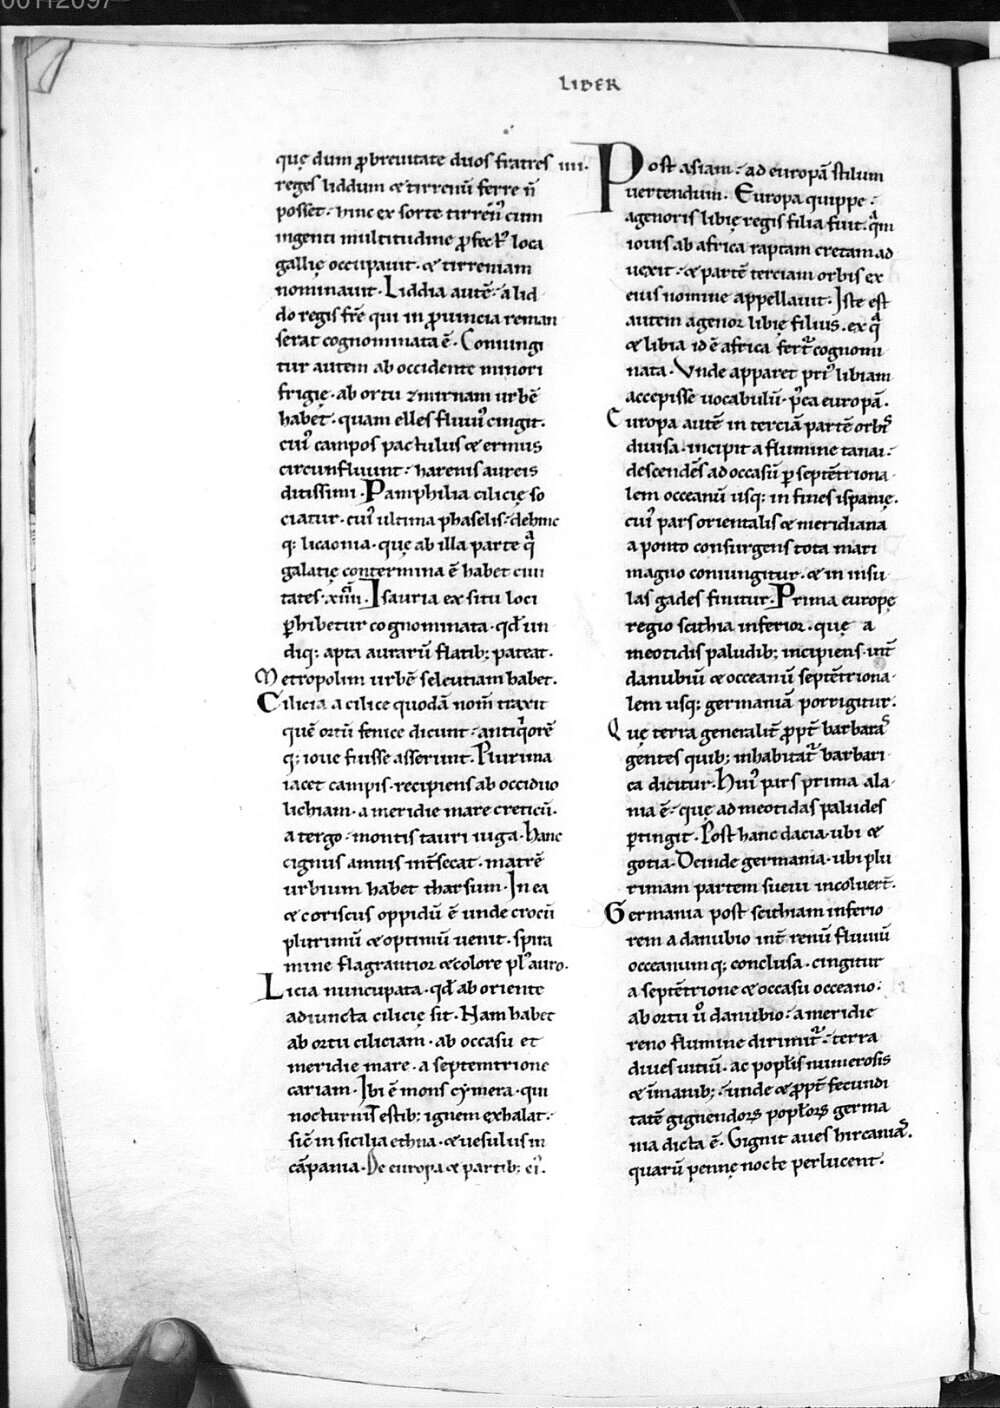 00112097
LIBER
quę dum ꝓbreuitate duos fratres
reges liddum & tirrenū ferre n̄
posset· hinc ex sorte tirren᷒ cum
ingenti multitudine ꝓfect᷒ loca
gallię occupauit· & tirreniam
nominauit· Liddia autē· a lid
do regis fr̄e qui in ꝓuincia reman
serat cognominata ē· Coniungi
tur autem ab occidente minori
frigię· ab ortu zmirnam urbē
habet· quam elles fluui᷒ cingit·
cui᷒ campos pactulus & ermus
circunfluunt· harenis aureis
ditissimi· Pamphilia cilicię so
ciatur· cui᷒ ultima phaselis· dehinc
q; licaonia· quę ab illa parte qͣ
galatię contermina ē habet ciui
tates· xiiii· Isauria ex situ loci
ꝑhibetur cognominata· qđ un
diq; apta aurarū flatib; pateat·
Metropolim urbē seleutiam habet·
Cilicia a cilice quodā nom̄ traxit
quē ortū fenice dicunt· antiqͥorē
q; ioue fuisse asserunt· Plurima
iacet campis· recipiens ab occiduo
lichiam· a meridie mare creticū·
a tergo· montis tauri iuga· Hanc
cignus amnis int̄secat· matrē
urbium habet tharsum· In ea
& coriscus oppidū ē unde crocū
plurimū & optimū uenit· spira
mine flagrantior & colore pl᷒ auro·
Licia nuncupata· qđ ab oriente
adiuncta cilicię sit· Nam habet
ab ortu ciliciam· ab occasu et
meridie mare· a septemtrione
cariam· Ibi ē mons cymera· qui
nocturnis estib; ignem exhalat·
sic̄ in sicilia ethna· & uesulus in
cāpania· De europa & partib; ei᷒·
iiii·
Post asiam· ad europā stilum
uertendum· Europa quippe·
agenoris libię regis filia fuit· qͣm
iouis ab africa raptam cretam ad
uexit· & partē terciam orbis ex
eius nomine appellauit· Iste est
autem agenor libię filius· ex qͣ
& libia id ē africa fert̄ cognomi
nata· Vnde apparet pri᷒ libiam
accepisse uocabulū· p᷒ea europā·
Europa autē in terciā partē orbis
diuisa· incipit a flumine tanai·
descendēs ad occasū ꝑ septētriona
lem occeanū usq; in fines ispanię·
cui᷒ pars orientalis & meridiana
a ponto consurgens tota mari
magno coniungitur· & in insu
las gades finitur· Prima europę
regio scithia inferior· quę a
meotidis paludib; incipiens int̄
danubiū & occeanū septētriona
lem usq; germaniā porrigitur·
Quę terra generalit̄ ꝓpt̄ barbaras
gentes quib; inhabitat̄ barbari
ca dicitur· Hui᷒ pars prima ala
nia ē· quę ad meotidas paludes
ꝑtingit· Post hanc dacia· ubi &
gotia· Deinde germania· ubi plu
rimam partem sueui incoluer̄·
Germania post scithiam inferio
rem a danubio int̄ renū fluuiū
occeanumq; conclusa· cingitur
a septētrione & occasu occeano·
ab ortu ů danubio· a meridie
reno flumine dirimit̄· terra
diues uitiū· ac popl̄is numerosis
& īmanib;· unde & ꝓpt̄ fecundi
tatē gignendoꝝ popl̄oꝝ germa
nia dicta ē· Gignit aues hircanias·
quarū pennę nocte perlucent·